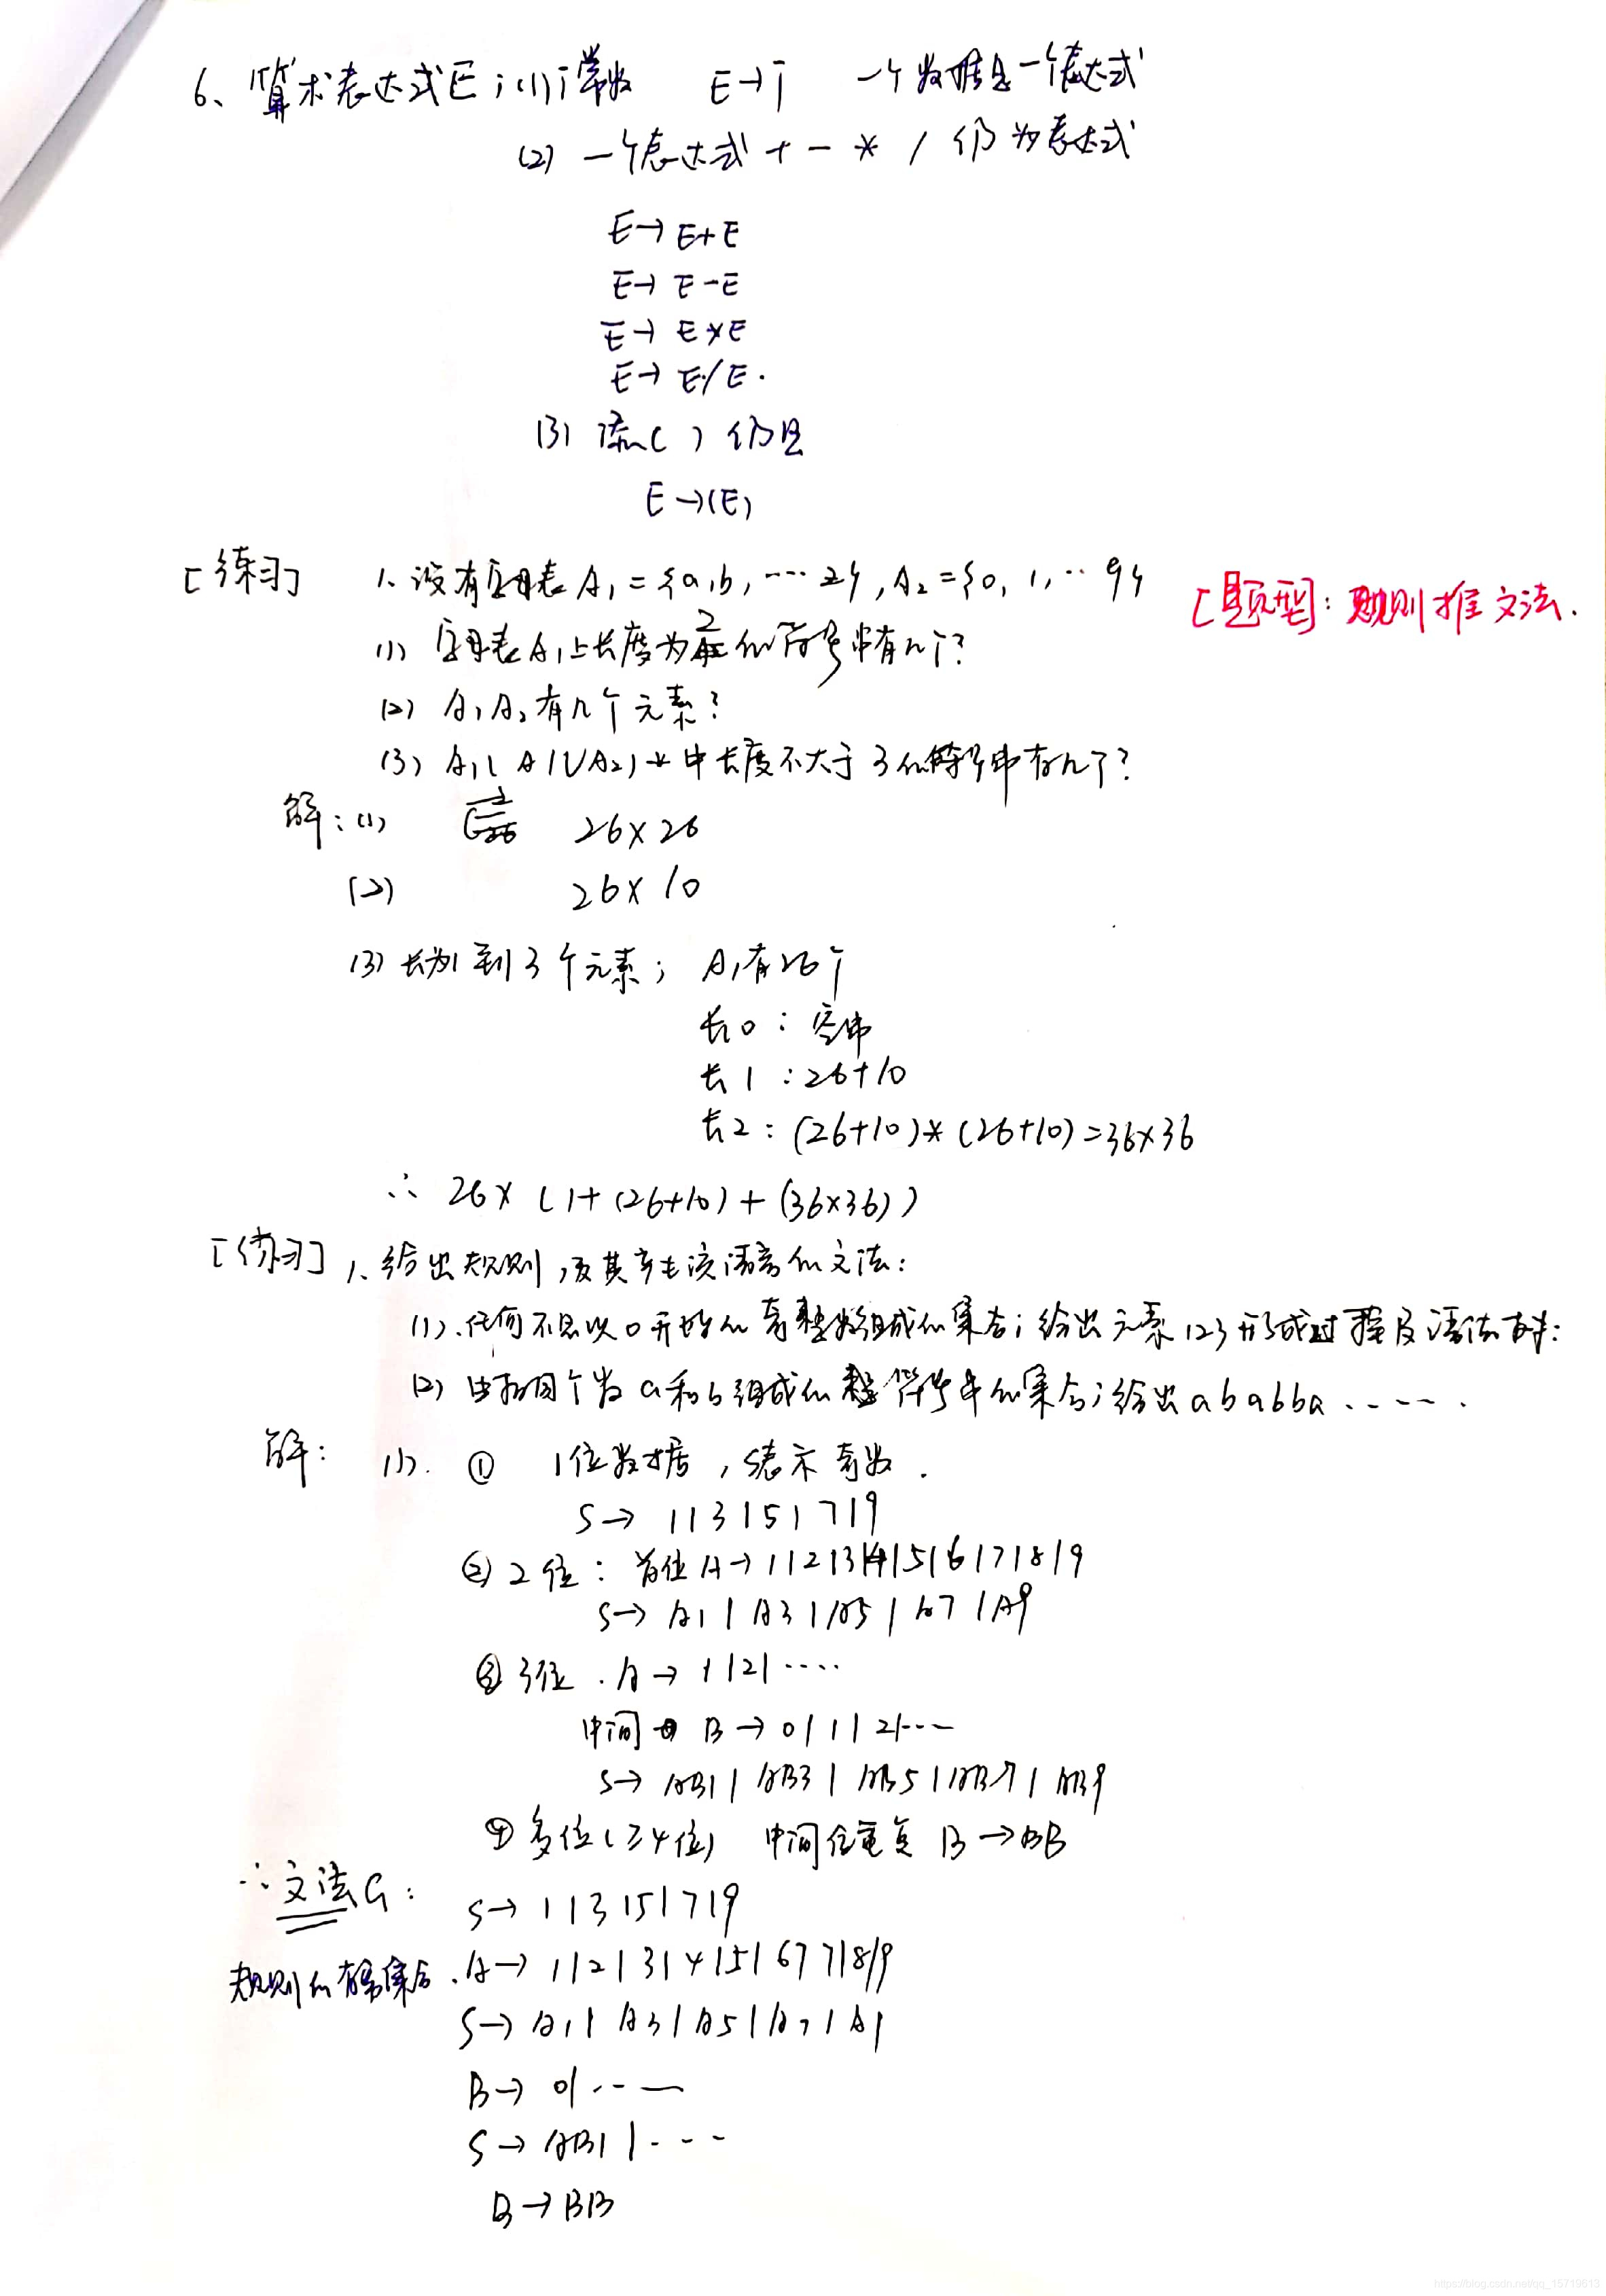 6、算术表达式E；(1) i 常数 E→i 一个数据是一个表达式
(2) 一个表达式 + - * / 仍为表达式
E→E+E
E→E-E
E→E*E
E→E/E.
(3) 添( ) 仍是
E→(E)
[练习] 1、设有字母表A₁={a,b,…z},A₂={0,1,…9}
[题型]：规则推文法.
(1) 字母表A₁上长度为2的符号串有几个?
(2) A₁A₂有几个元素?
(3) A₁(A1∪A2)*中长度不大于3的符号串有几个?
解：(1) 26×26
(2) 26×10
(3) 长为1到3个元素； A₁有26个
长0：空串
长1：26+10
长2：(26+10)*(26+10)=36×36
∴ 26×(1+(26+10)+(36×36))
[练习] 1、给出规则,及其产生该语言的文法：
(1).任何不是以0开始的奇整数组成的集合；给出元素123形成过程及语法树：
(2) 由相同个数a和b组成的符号串的集合；给出ababba.....
解： (1). ① 1位数据，S表示奇数.
S→1|3|5|7|9
② 2位：首位A→1|2|3|4|5|6|7|8|9
S→A1|A3|A5|A7|A9
③ 3位.A→1|2|····
中间 B→0|1|2|···
S→AB1|AB3|AB5|AB7|AB9
④ 多位(≥4位) 中间位重复 B→BB
∴文法G： S→1|3|5|7|9
规则的有穷集合. A→1|2|3|4|5|6|7|8|9
S→A1|A3|A5|A7|A
B→0|···
S→AB1|···
B→BB
https://blog.csdn.net/qq_15719613